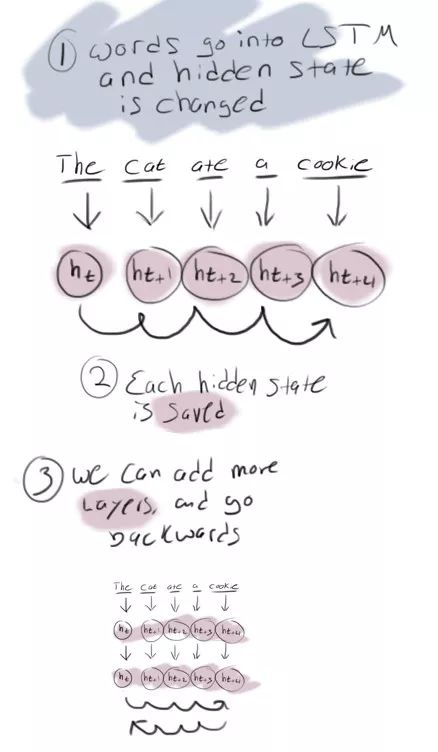 1 words go into LSTM
and hidden state
is changed
The cat ate a cookie
ht ht+1 ht+2 ht+3 ht+4
2 Each hidden state
is saved
3 we can add more
Layers, and go
backwards
The cat ate a cookie
ht ht+1 ht+2 ht+3 ht+4
ht ht+1 ht+2 ht+3 ht+4